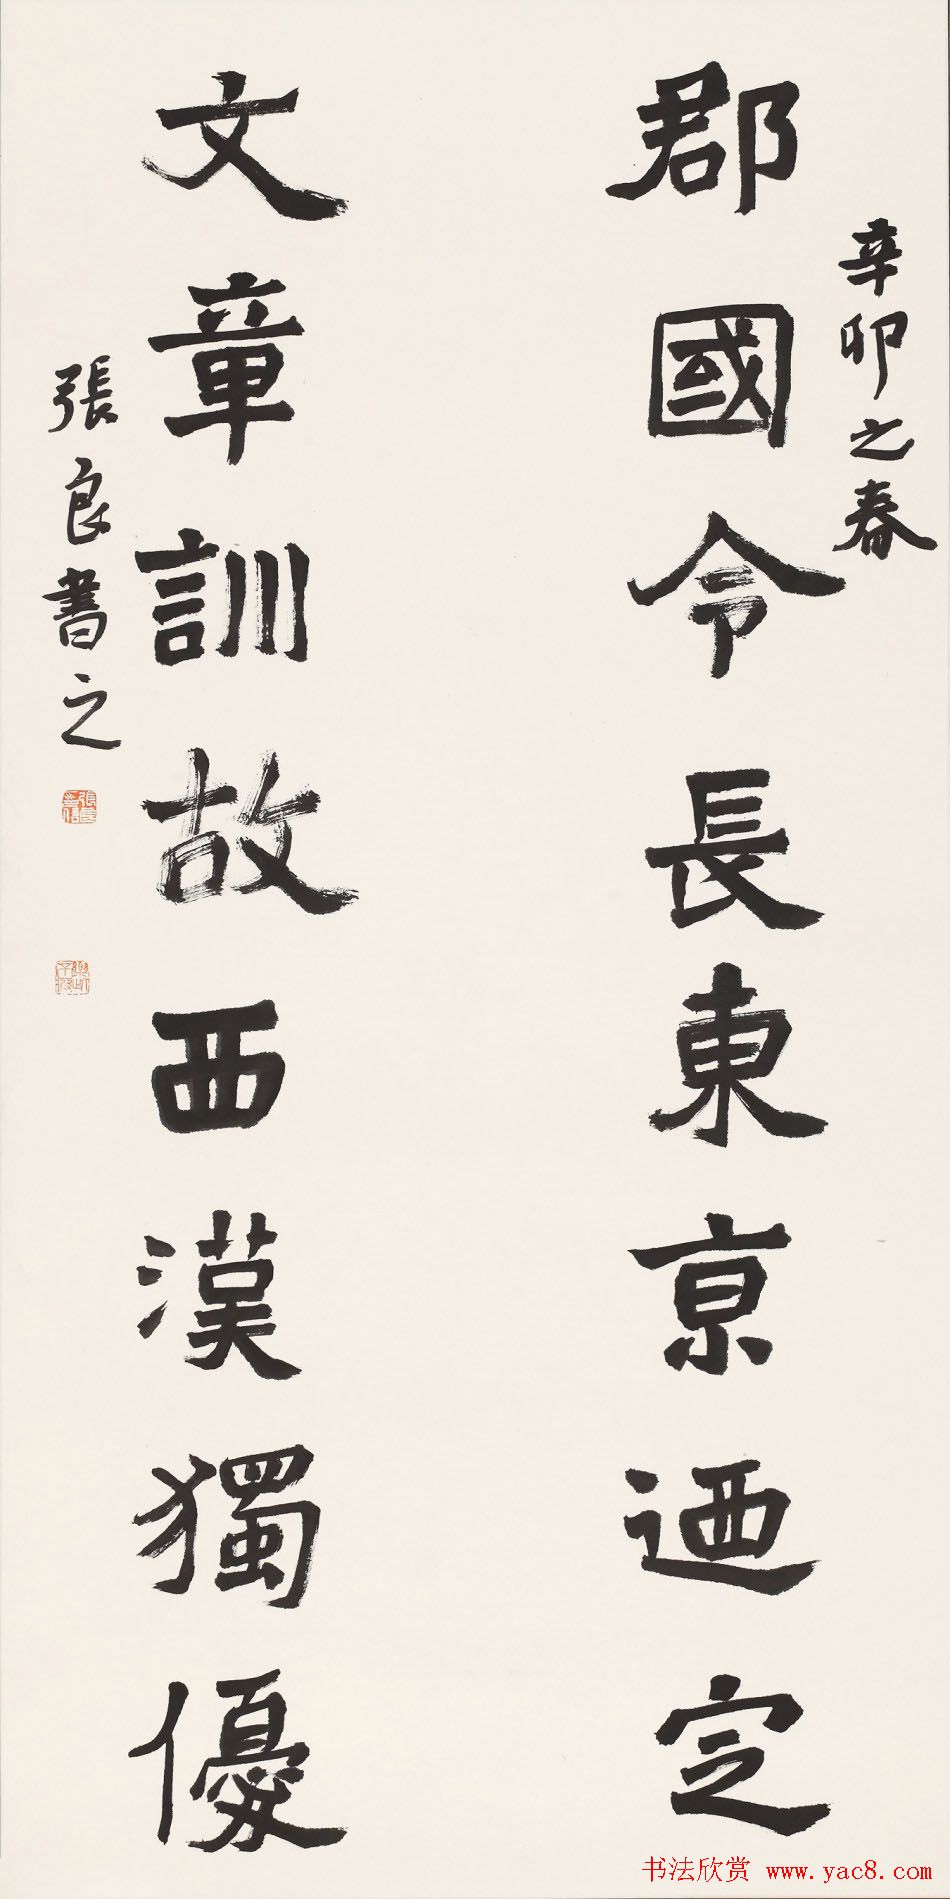 辛卯之春
郡國令長東京迺定
文章訓故西漢獨優
張良書之
书法欣赏 www.yac8.com